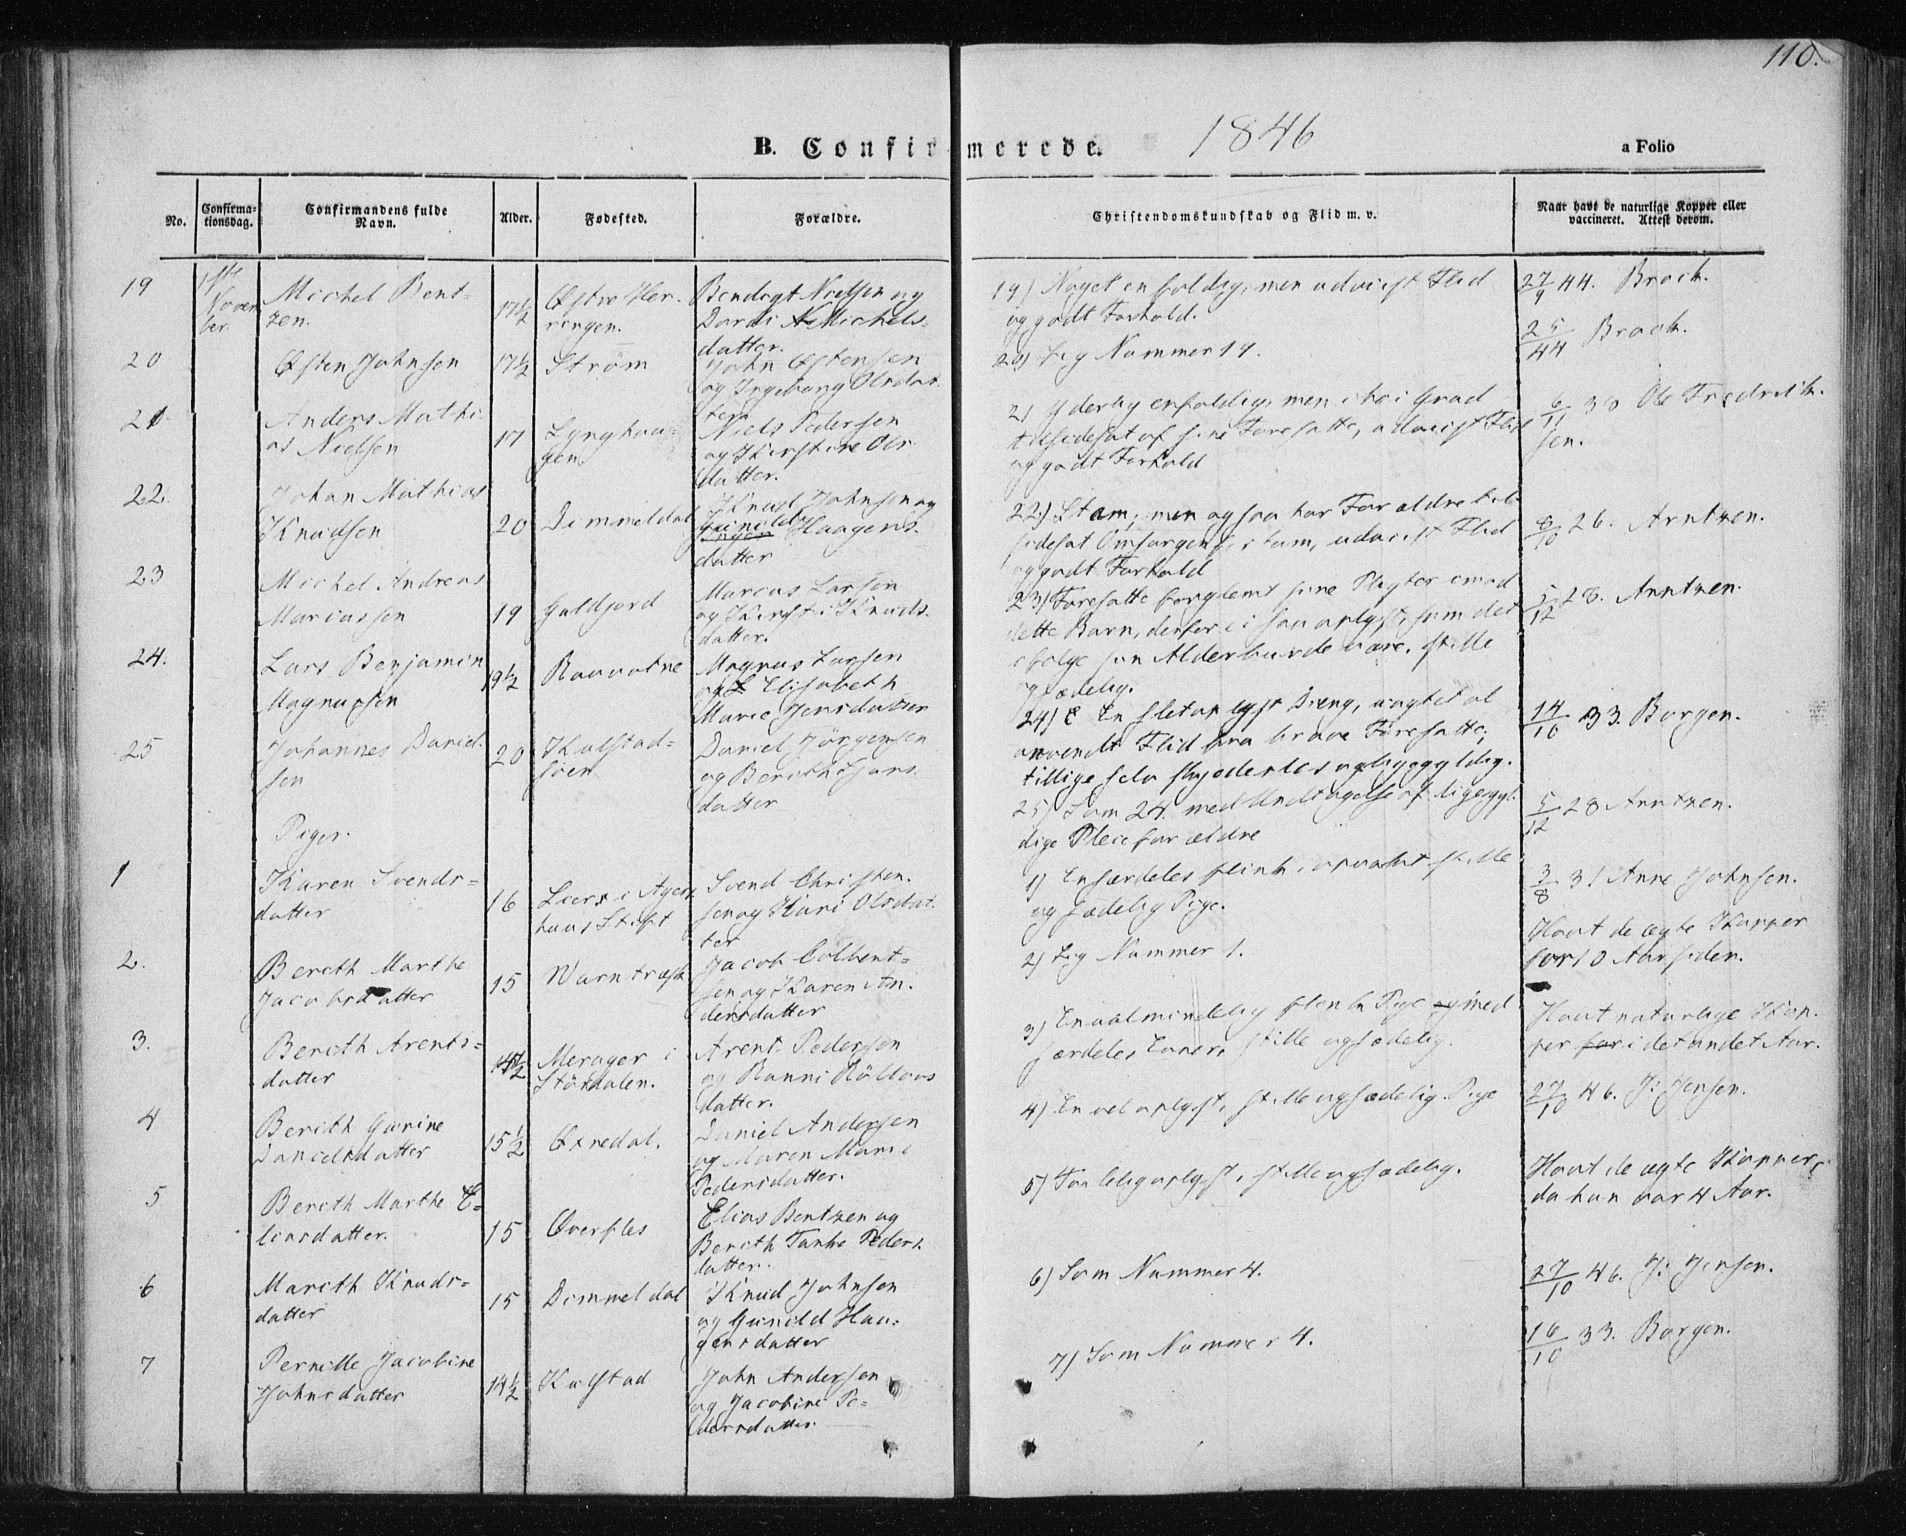 110.
B. Confirmerede. 1846
a Folio
No.
Confirma-
tionsdag.
Confirmandens fulde
Navn.
Alder.
Fødested.
Forældre.
Christendomskundskab og Flid m. v.
Naar havt de naturlige Kopper eller
vaccineret. Attest derom.
19
1ste
Novem
ber.
Michel Bent-
zen.
17½
ringen.
Bendigt Nielsen og
Dordi Michels-
datter.
19) Noget enfoldig, men udviist Flid
og godt Forhold.
27/9 44. Brock.
20
Østen Johnsen
17½
Strøm
John Østensen
og Ingeborg Olsdat-
ter
20) Lig Nummer 19.
25/44 Brock.
21
Anders Mathi-
as Nielsen
17
Niels Pedersen
og Kirstine Ols-
datter.
2) Yderlig enfoldig, men i høi Grad
tilsidesat af sine Foresatte, udviist Flid
og godt Forhold
6/11 38 Ole Fredrik-
sen.
22.
Johan Mathias
Knudsen
20
Dimmeldal
Knud Johnsen og
Gunild Haagens-
datter
22) Stam, men ogsaa har Forældre til-
sidesat Omsorgen for ham, udviist Flid
og godt Forhold
8/10 26. Arntzen.
23
Michel Andreas
Marcussen
19
Galdjord
Marcus Larsen
og Kirsti Knuds-
datter.
23) Foresatte forglemt sine Pligter imod
dette Barn, derfor ei saa oplyst, som det
ifølge sin Alder burde være. stille
og sædelig.
5/12 28. Arntzen.
24.
Lars Benjamin
Magnussen
19½
Ravnatne
Magnus Larsen
og Elisabeth
Marie Jensdatter
24) En slet oplyst Dreng, uagtet al
anvendt Flid fra brave Foresatte;
tillige selv skjødesløs og ligegyldig.
14/10 33. Borgen.
25
Johannes Daniel-
sen
20
Kalstad-
søen
Daniel Jörgensen
og Berith Sjurs-
datter
25) Som 24. med Undtagelse af ligegyl-
dige Pleieforældre
5/12 28 Arntzen.
Piger.
1
Karen Svends-
datter
16
huus Stift
Svend Christen-
sen og Kari Olsdat-
ter
1) Særdeles flink, opvakt, stille
og sædelig Pige.
3/8 31 Anne Johnsen.
2.
Berith Marthe
Jacobsdatter
15
Varntræsk
Jacob Colbent-
sen og Karen An-
dersdatter
2) Lig Nummer 1.
Havt de ægte Kopper
for 10 Aar siden.
3.
Berith Arents-
datter
14½
Merager i
Stördalen.
Arent Pedersen
og Ranni
datter.
3) En ualmindelig flink Pige med
særdeles Evner, stille og sædelig.
Havt naturlige Kop-
per i det andet Aar.
4
Berith Gurine
Danielsdatter
15½
Øxnedal.
Daniel Andersen
og Maren Marie
Pedersdatter.
4) En vel oplyst, stille og sædelig Pige
27/10 46. J: Jensen.
5
Berith Marthe E-
liasdatter.
15
Øverfles
Elias Bentzen og
Berith Peders-
datter.
5) Taalelig oplyst, stille og sædelig.
Havt de ægte Kopper,
da hun var 4 Aar.
6
Marith Knuds-
datter
15
Dimmeldal
Knud Johnsen
og Gunild Haa-
gensdatter
6) Som Nummer 4.
27/10 46. J: Jensen.
7
Pernille Jacobine
Johnsdatter
14½
Kalstad
John Andersen
og Jacobine Pe-
dersdatter.
7) Som Nummer 4.
16/10 33. Borgen.